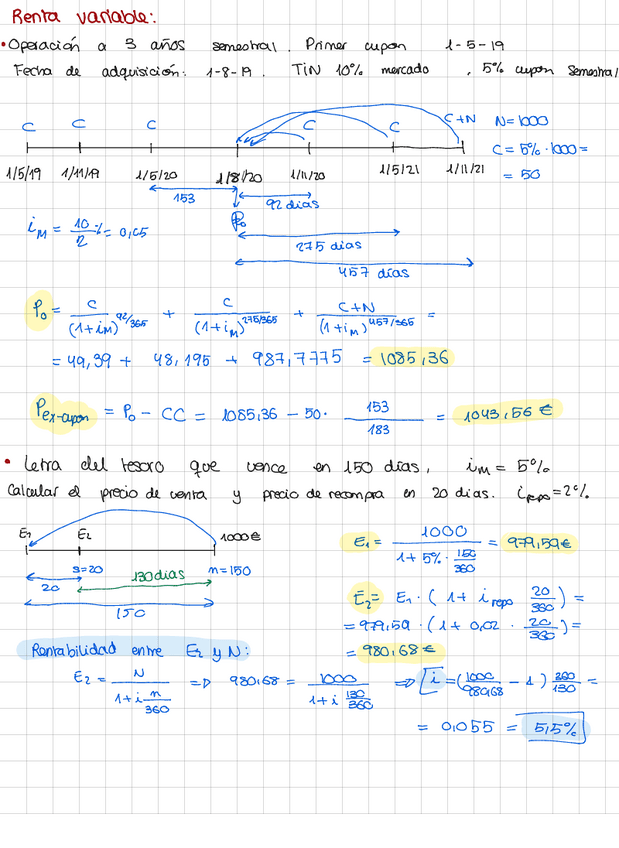 Renta variable:
• Operación a 3 años semestral. Primer cupon 1-5-19
Fecha de adquisición: 1-8-19. TIN 10% mercado, 5% cupon semestral
C C C C C C+N N=1000
C = 5% · 1000 =
= 50
1/5/19 1/11/19 1/5/20 1/8/20 1/11/20 1/5/21 1/11/21
153 92 dias
P₀
275 dias
457 días
i_M = 10%/2 = 0,05
P₀ = C/(1+i_M)^92/365 + C/(1+i_M)^275/365 + C+N/(1+i_M)^457/365 =
= 49,39 + 48,195 + 987,7775 = 1085,36
P_ex-cupon = P₀ - CC = 1085,36 - 50 · 153/183 = 1043,56 €
• Letra del tesoro que vence en 150 días, i_M = 5%
Calcular el precio de venta y precio de recompra en 20 dias. i_repo = 2%
E₁ E₂ 1000€
s=20 130 dias n=150
20
150
E₁ = 1000/(1 + 5% · 150/360) = 979,59€
E₂ = E₁ · (1 + i_repo 20/360) =
= 979,59 · (1 + 0,02 · 20/360) =
= 980,68 €
Rentabilidad entre E₂ y N:
E₂ = N/(1 + i n/360) => 980,68 = 1000/(1 + i 130/360) => i = (1000/980,68 - 1) 360/130 =
= 0,055 = 5,5%